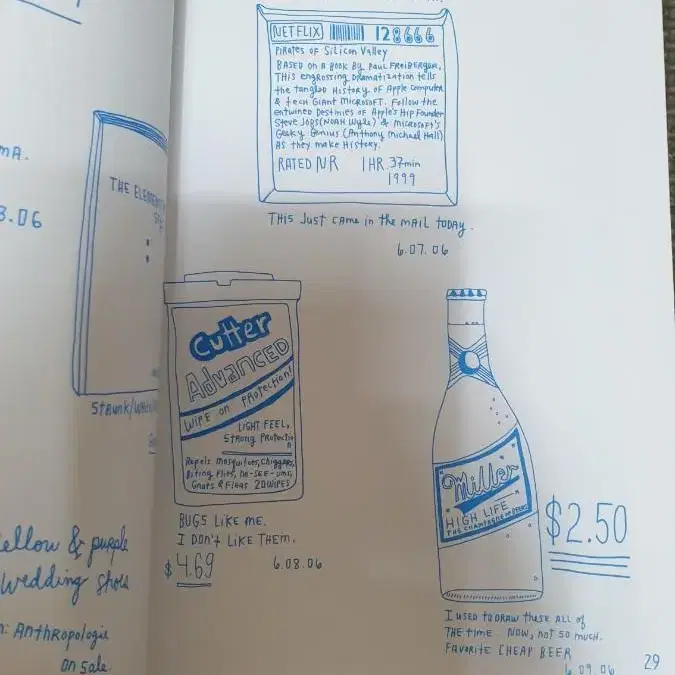 mA.
3.06
THE ELEMEN
Strunk/Whi
ellow & purple
Wedding Shoes
m: Anthropologie
on sale.
NETFLIX 128666
Pirates of Silicon Valley
Based on a book by Paul Freiberger,
This engrossing dramatization tells
the tangled History of Apple Computer
& tech Giant Microsoft. Follow the
entwined Destinies of Apple's Hip Founder
Steve Jobs (Noah Wyle) & Microsoft's
Geeky Genius (Anthony Michael Hall)
As they make History.
RATED NR 1 HR. 37min
1999
THIS Just came in the mail today.
6.07.06
Cutter
Advanced
Wipe on Protection!
Light Feel,
Strong Protectio
n
Repels Mosquitoes, Chiggers,
Biting Flies, No-See-Ums,
Gnats & Fleas 20 Wipes
BUGS LIKE ME.
I DON'T LIKE THEM.
$4.69
6.08.06
Miller
HIGH LIFE
THE CHAMPAGNE OF BEERS
$2.50
I used to draw these all of
the time. Now, not so much.
Favorite cheap beer
6.09.06
29